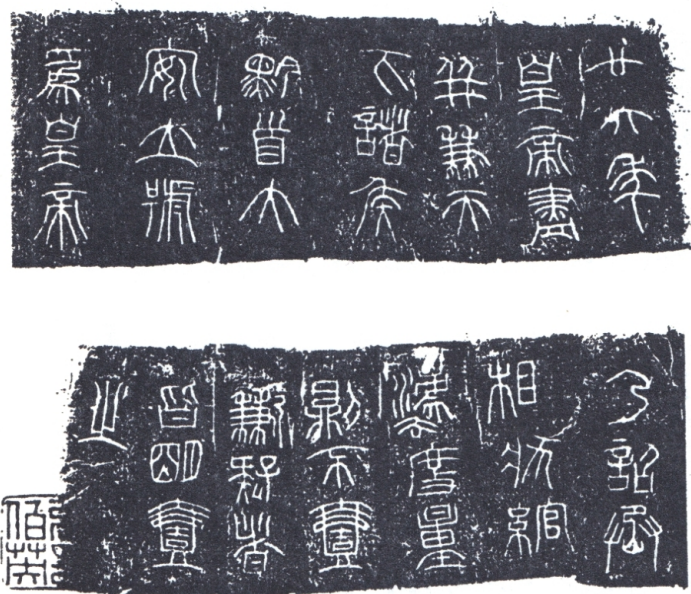 廿六年
皇帝盡
并兼天
下諸侯
黔首大
安立號
為皇帝
乃詔丞
相狀綰
灋度量
則不壹
歉疑者
皆明壹
之